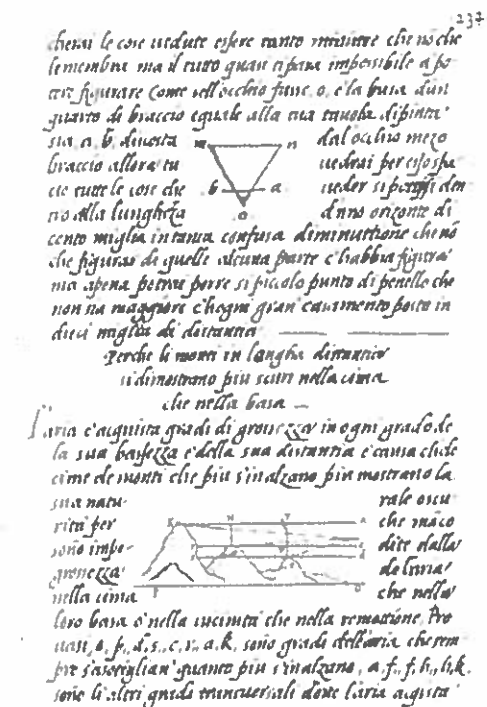 237
cherai le cose vedute essere tanto minime che nō che
le membra ma il tutto quasi ti para impossibile a po
ter figurare Come se ll'occhio fusse .o. e la busa d'un
quarto di braccio eguale alla tua tavola dipinta
sia .a. b. distosta dal occhio mezo
m n
braccio allora tu vedrai per esso spa
cio tutte le cose che veder si possi den
b a
tro alla lunghezza d'uno orizonte di
o
cento miglia in tanta confusa diminuttione che nō
che figurar di quelle alcuna parte c'habbia figura
ma apena potrai porre si piccolo punto di penello che
non sia maggiore c'hogni gran casamento posto in
dieci miglia di distantia
Perche li monti in longha distantia
si dimostrano piu scuri nella cima
che nella basa
L'aria c'acquista gradi di grossezza in ogni grado de
la sua bassezza e della sua distantia e causa che le
cime de monti che piu s'inalzano piu mostrano la
sua natu- rale oscu
rita per che māco
sono impe- dite dalla
grossezza de l'aria
nella cima che nella
loro basa o nella vicinita che nella remottione. Pro
vasi, o, p, d, s, c, r, a, k, sono gradi dell'aria che sem
pre s'asotiglian quanto piu s'inalzano, a, f, f, h, h, k,
sono li altri gradi transversali dove l'aria aquista